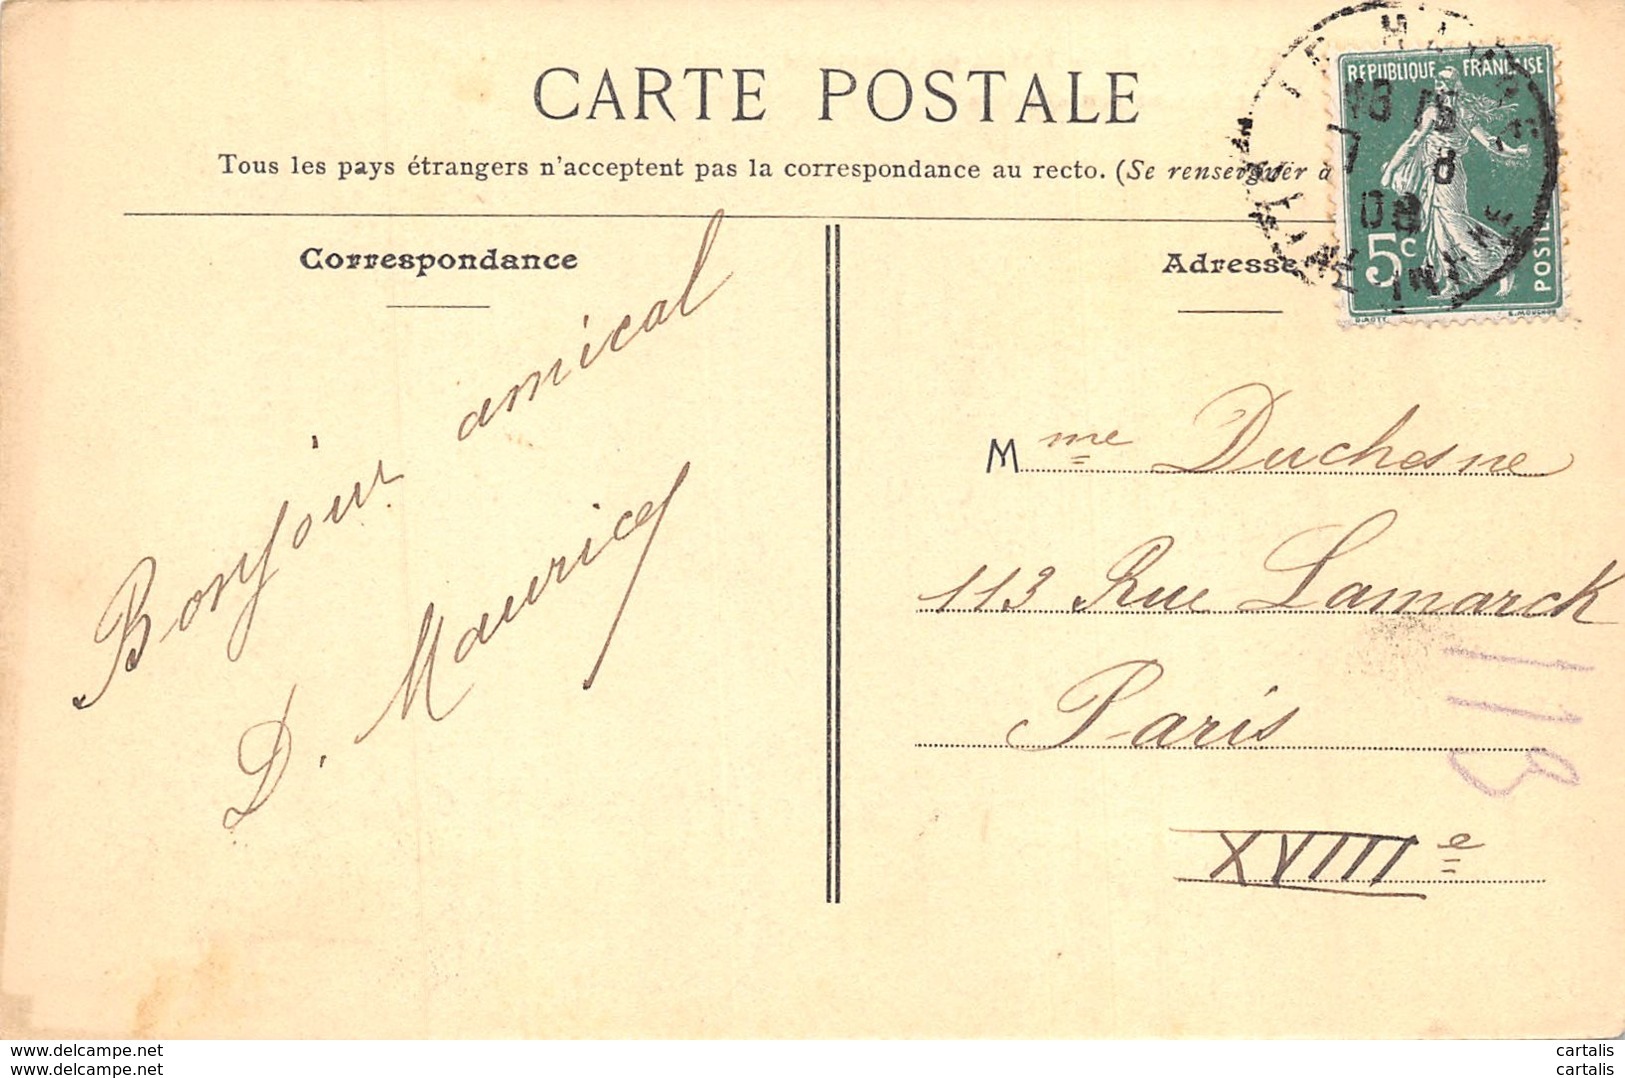 CARTE POSTALE
Tous les pays étrangers n'acceptent pas la correspondance au recto. (Se renseigner à
REPUBLIQUE FRANÇAISE
5c
POSTES
Correspondance
Adresse
Bonjour amical
D. Maurice
Mme Duchesne
113 Rue Lamarck
Paris
XVIIIe
113
www.delcampe.net
cartalis
www.delcampe.net
cartalis